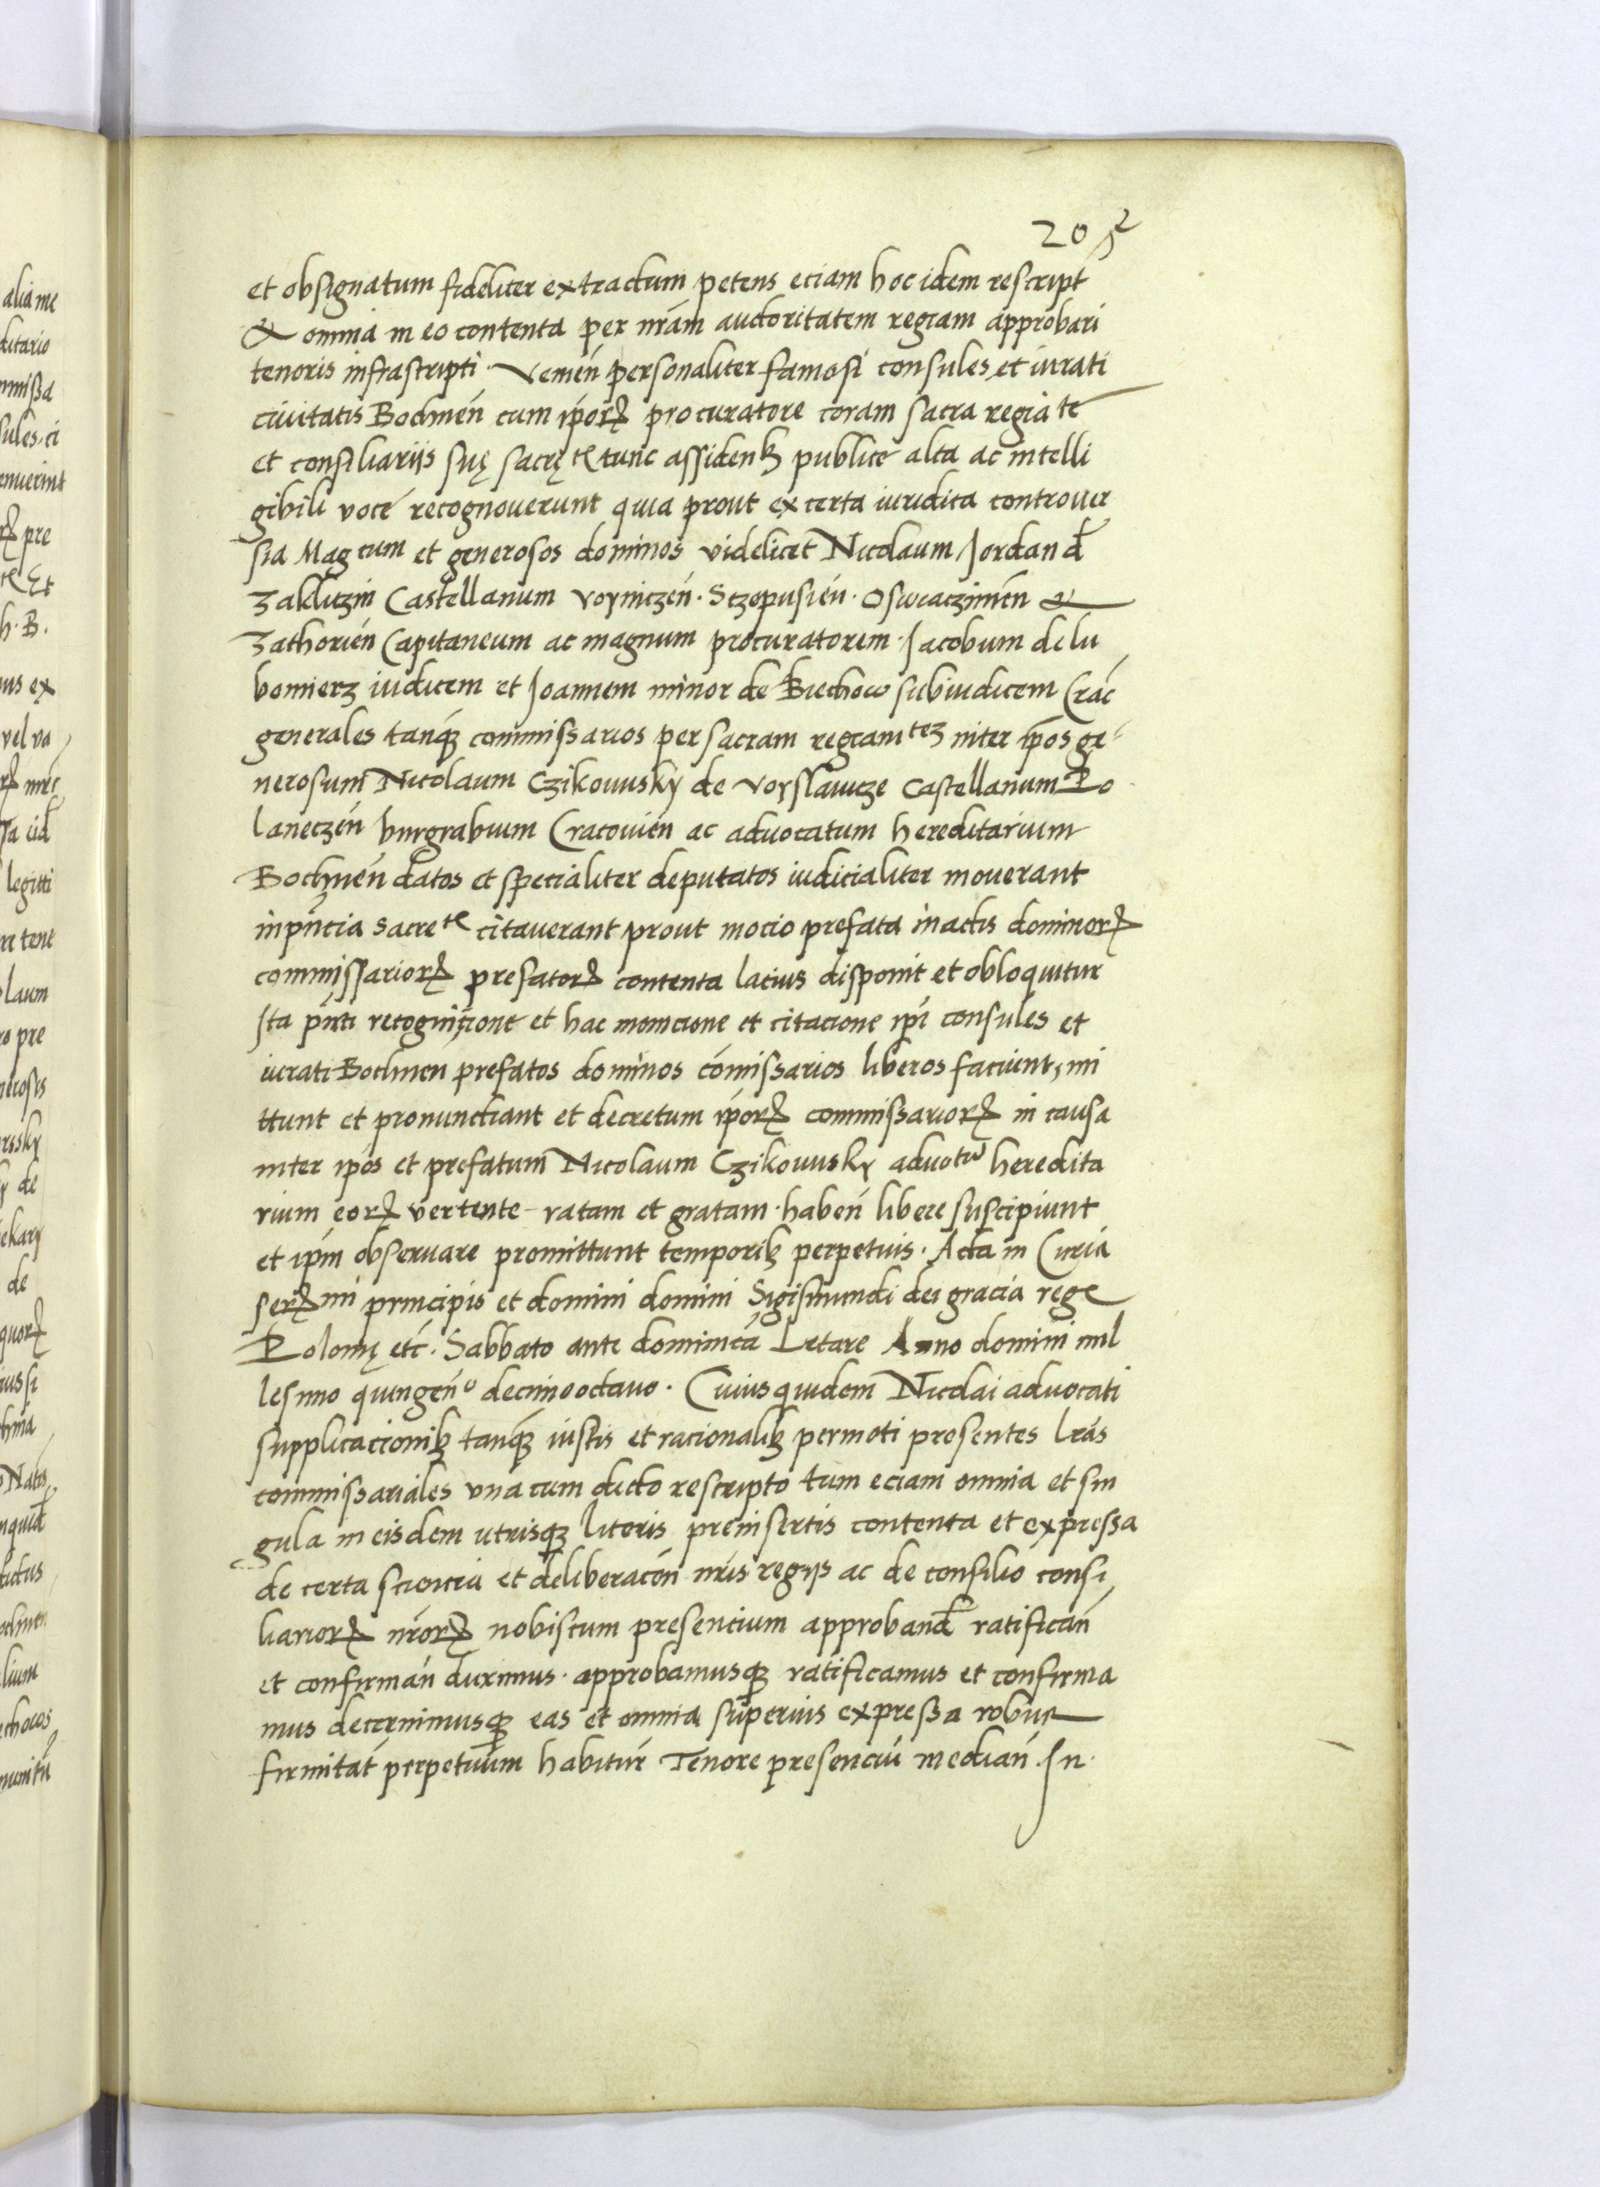 202
et obsignatum fideliter extractum petens eciam hoc idem rescript
& omnia in eo contenta per nrãm auctoritatem regiam approbari
tenoris infrascripti. Venien̄ personaliter famosi consules et iurati
ciuitatis Bochnen̄ cum ip̄oꝝ procuratore coram sacra regia te
et consiliariis suę sacrę tꝭ tunc assidentꝫ publice alta ac intelli
gibili voce recognouerunt quia prout ex certa iuridica controuer
sia Magcum et generosos dominos videlicet Nicolaum Jordan đ
Zaklitzin Castellanum voyniczen̄. Sczepusien̄. Oswiaczimen̄ &
Zathorien̄ Capitaneum ac magnum procuratorem. Jacobum de lu
bomierz iudicem et Joannem minor de Biechow subiudicem Crac̄
generales tanqꝫ commissarios per sacram regiam tez inter ip̄os ge-
nerosum Nicolaum Czikowsky de voyslawicze Castellanum Po
laneczen̄ burgrabium Cracouien̄ ac aduocatum hereditarium
Bochnen̄ datos et specialiter deputatos iudicialiter mouerant
in pn̄cia sacre tꝭ citauerant prout mocio prefata in actis dominoꝝ
commissarioꝝ prefatoꝝ contenta lacius disponit et obloquitur
Ita pn̄ti recognicione et hac monicione et citacione ip̄i consules et
iurati Bochnen prefatos dominos cōmissarios liberos faciunt, mi
ttunt et pronunctiant et decretum ip̄oꝝ commissarioꝝ in causa
inter ip̄os et prefatum Nicolaum Czikowsky aduotū heredita
rium eoꝝ vertente ratam et gratam. haben̄ libere suscipiunt
et ip̄m obseruare promittunt temporibꝫ perpetuis. Acta in Curia
serꝝmi principis et domini domini Sigismundi dei gracia rege
Polonię etc̄. Sabbato ante dominicā Letare Anno domini mil
lesimo quingen̄o decimooctauo. Cuius quidem Nicolai aduocati
supplicacionibꝫ tanqꝫ iustis et racionalibꝫ permoti presentes lr̄as
commissariales vna cum dicto rescripto tum eciam omnia et sin
gula in eisdem utrisqꝫ literis preinsertis contenta et expressa
de certa sciencia et deliberacōn nr̄is regiis ac de consilio consi
liarioꝝ nr̄oꝝ nobiscum presencium approbanđ ratifican̄
et confirman̄ duximus. approbamusqꝫ ratificamus et confirma
mus decernimusqꝫ eas et omnia superius expressa robur
firmitat̄ perpetuum habitur̄ Tenore presenciū median̄. In.